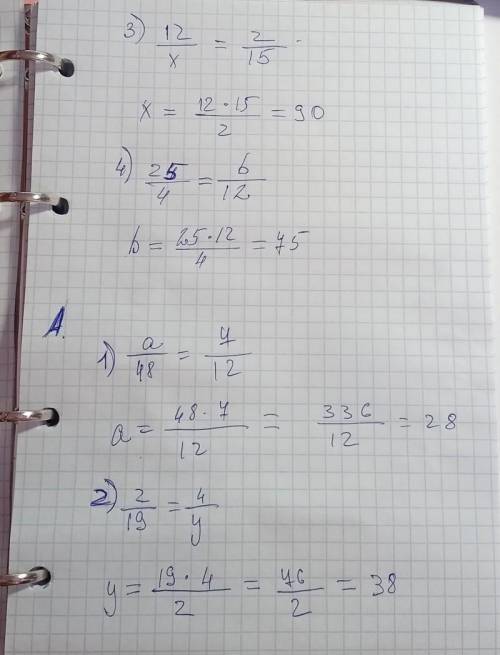 3) 12/x = 2/15
x = 12·15/2 = 90
4) 25/4 = b/12
b = 25·12/4 = 75
A.
1) a/48 = 7/12
a = 48·7/12 = 336/12 = 28
2) 2/19 = 4/y
y = 19·4/2 = 76/2 = 38